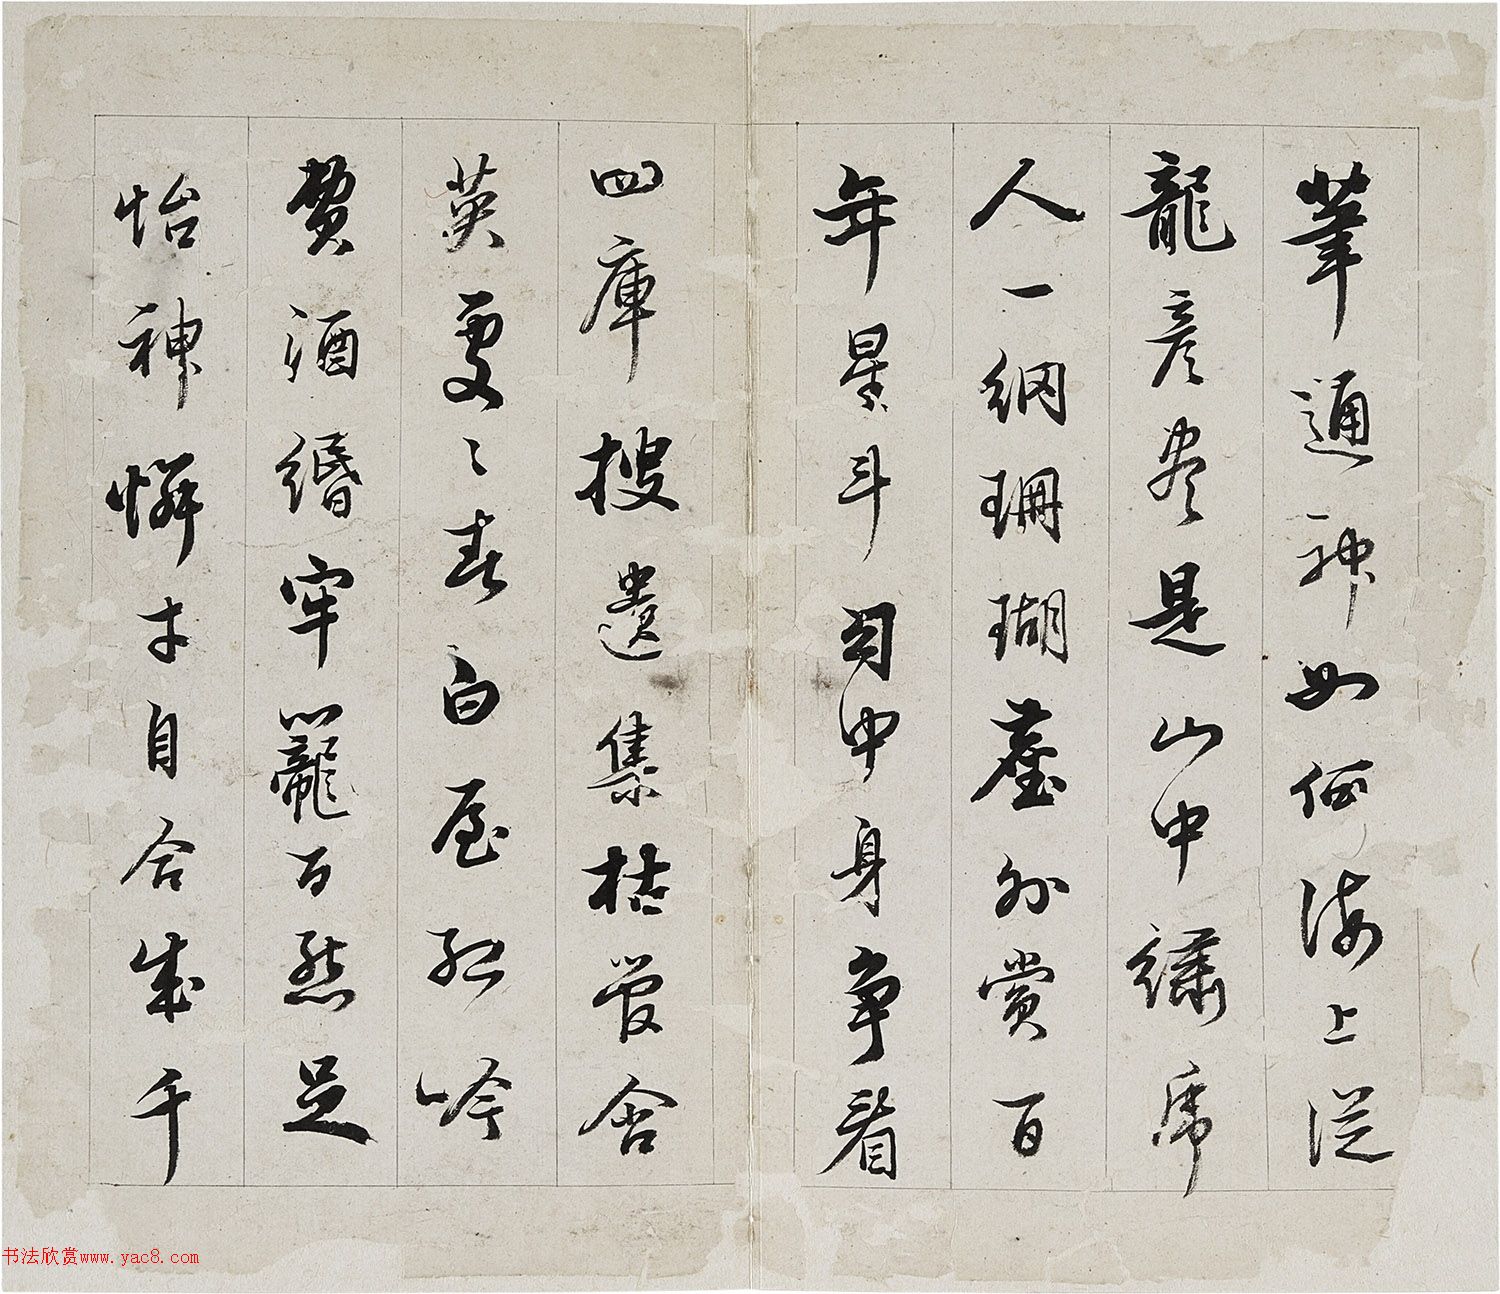 筆通神如何海上從
龍彥盡是山中繡虎
人一網珊瑚臺外賞百
年星斗中身爭看
四庫搜遺集枯管含
英更〻春白屋孤吟
費酒緡牢籠百態足
怡神憐才自合成千
书法欣赏www.yac8.com